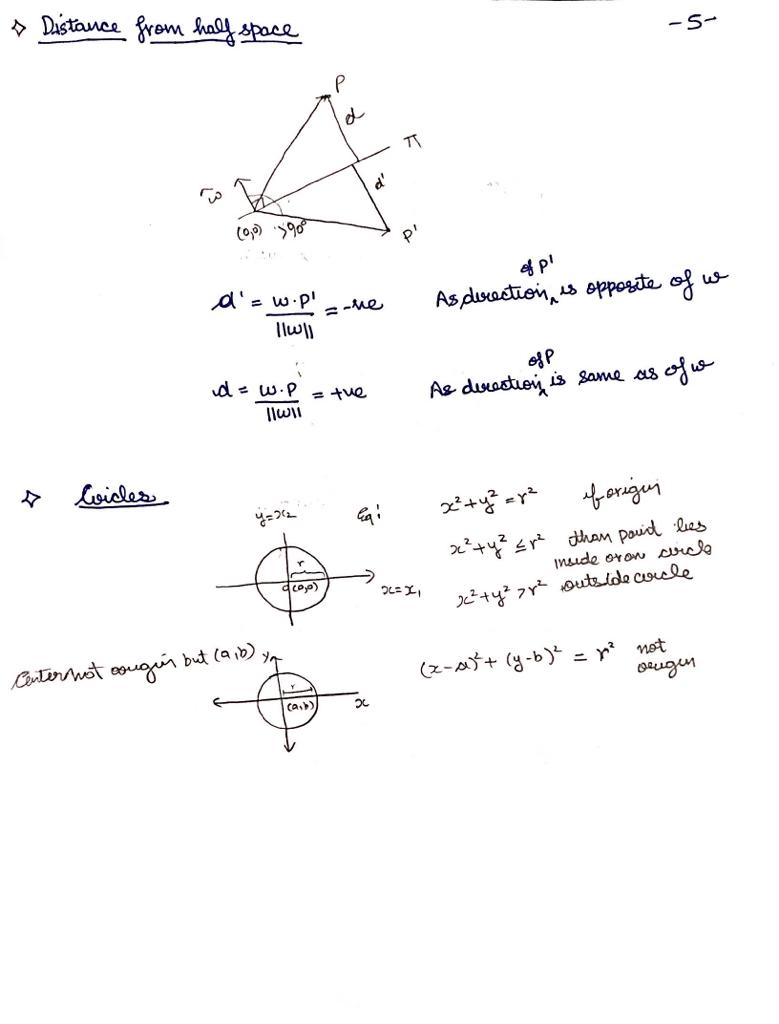 Distance from half space
-5-
P
d
π
w
d'
(0,0) >90°
P'
d' = w·P' / ||w|| = -ve As direction of P' is opposite of w
d = w·P / ||w|| = +ve As direction of P is same as of w
Circles
y=x₂ Eq: x²+y² = r² if origin
r x²+y² ≤ r² than point lies
inside or on circle
(0,0) x=x₁ x²+y² > r² outside circle
Center not origin but (a,b) y (x-a)²+(y-b)² = r² not
origin
r
(a,b) x